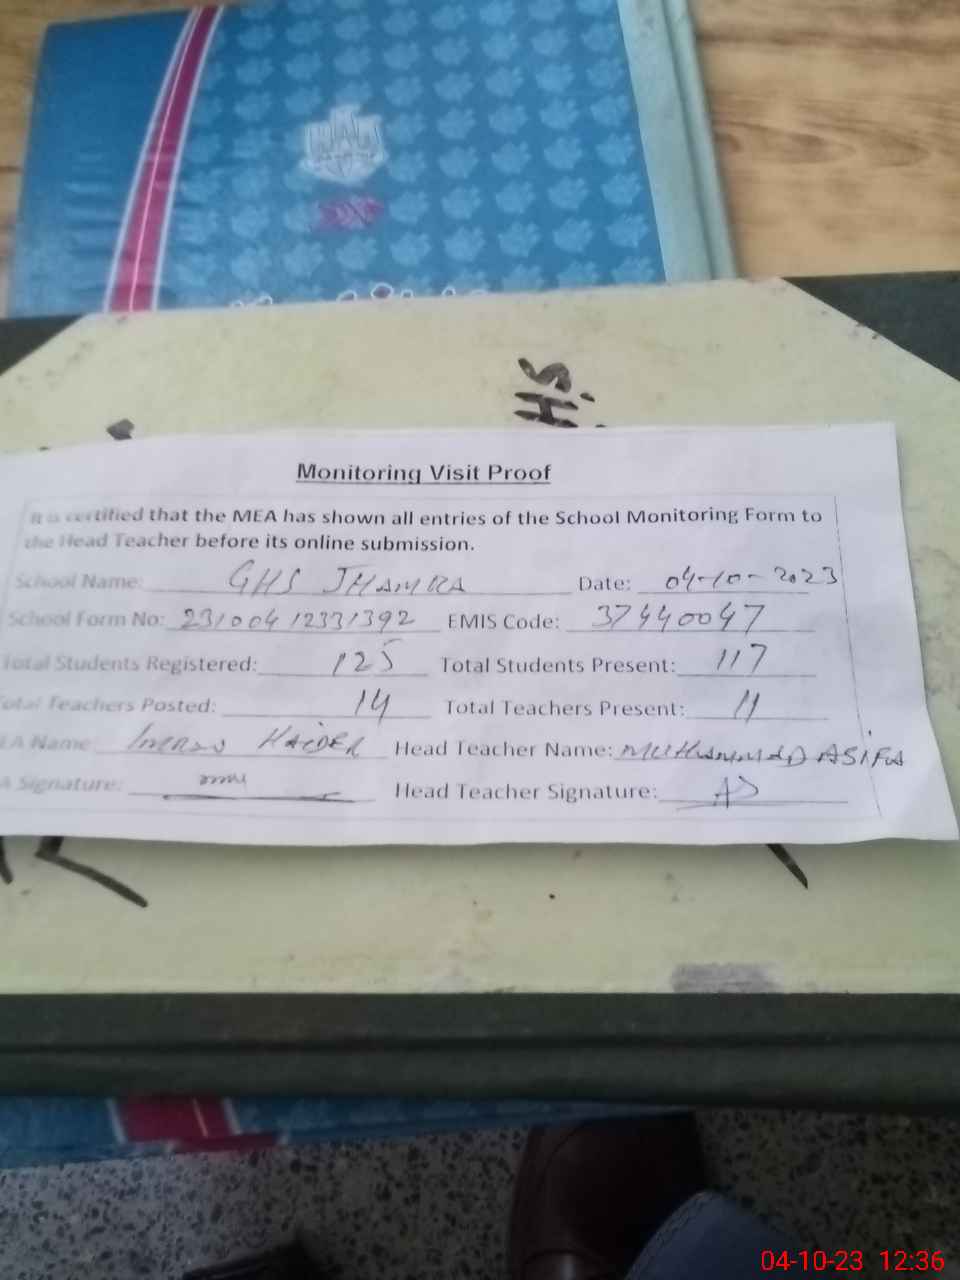 H.S.
Monitoring Visit Proof
It is certified that the MEA has shown all entries of the School Monitoring Form to
the Head Teacher before its online submission.
School Name: GHS JHAMRA Date: 04-10-2023
School Form No: 231004 12331392 EMIS Code: 37440047
Total Students Registered: 125 Total Students Present: 117
Total Teachers Posted: 14 Total Teachers Present: 11
EA Name Imran HAIDER Head Teacher Name: MUHAMMAD ASIF
A Signature: Head Teacher Signature:
04-10-23 12:36